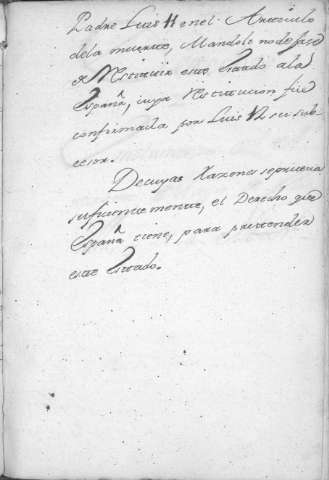 Padre Luis 11 en el Articulo
dela muerte, Mandole no dejase
de Restituir este Estado ala
España, cuya Restitucion fue
confirmada por Luis 12 su sub-
cesor.
De cuyas Razones seprueva
suficientemente, el Derecho que
España tiene, para pretender
este Estado.